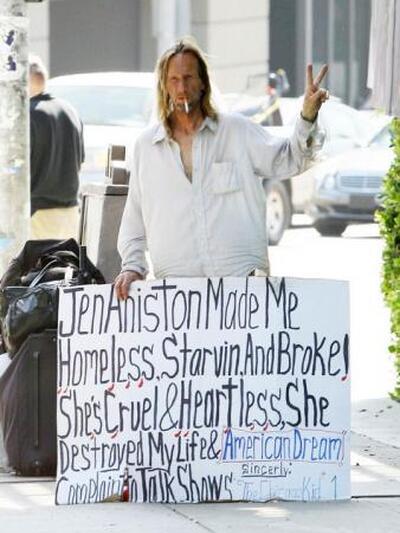 Jen Aniston Made Me
Homeless, Starvin, And Broke!
She's Cruel & Heartless, She
Destroyed My Life & American Dream
Sincerly:
Complain to Talk Shows "The Chicago Kid" 1